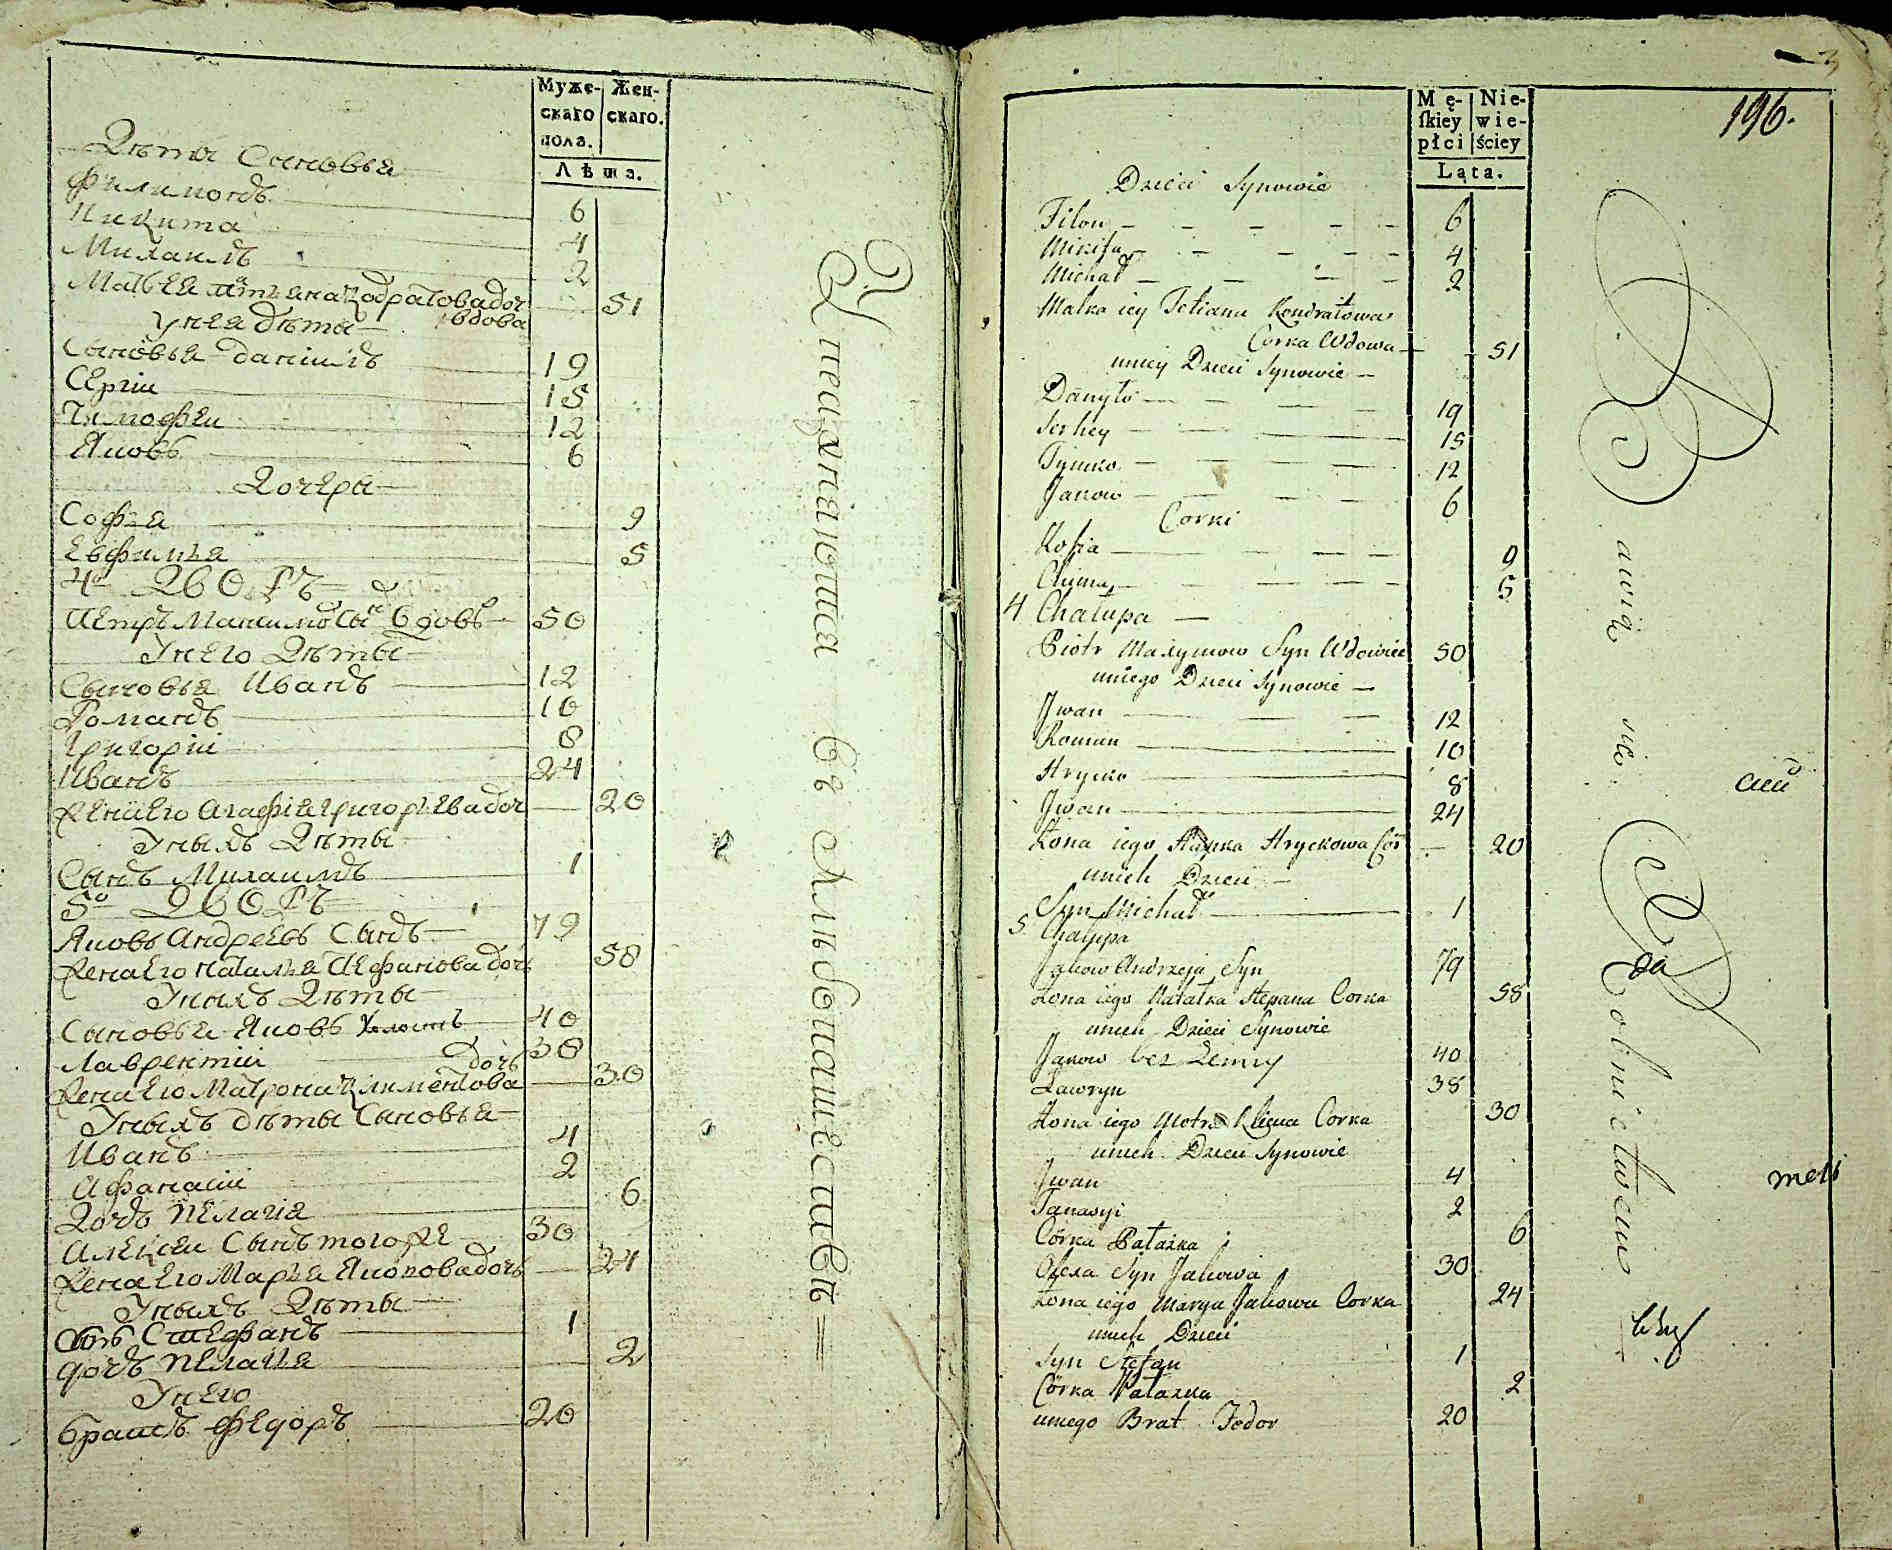 Муже-
скаго
пола.
Жен-
скаго.
Лѣта.
Дѣти Сыновья
Филимонъ 6
Никита 4
Михаилъ 2
Матьея Татьяна Кодратова доч 51
вдова
у нея дѣти
Сыновья Даниилъ 19
Сергіи 15
Тимофеи 12
Яковъ 6
Дочери
Софья 9
Евфимья 5
4й ДВОРЪ
Петръ Макимовъ Сынъ Вдовъ 50
У него Дѣти
Сыновья Иванъ 12
Романъ 10
Григоріи 8
Иванъ 24
Жена Его Агафія Григорьева доч 20
У ныхъ Дѣты
Сынъ Михаилъ 1
5й ДВОРЪ
Яковъ Андреевъ Сынъ 79
Жена Его Наталья Щефанова дочь 58
У ныхъ Дѣты
Сыновья Яковъ Холостъ 40
Лаврентіи 38
дочь
Жена Его Матрона Климентова 30
У ныхъ дѣты Сыновья
Иванъ 4
Афанасіи 2
Дочъ Пелагія 6
Алексеи Сынъ того же 30
Жена Его Марья Якопова дочь 24
У ныхъ Дѣты
Сынъ Стефанъ 1
дочъ Пелагія 2
У него
братъ Федоръ 20
Упражняются въ Хлѣбопашествѣ
Mę-
skiey
płci
Nie-
wie-
ściey
Ląta.
196.
Dzieci Synowie
Filon 6
Mikita 4
Michał 2
Matka iey Tetiana Kondratowa
Corka Wdowa 51
uniey Dzieci Synowie
Danyło 19
Serhey 15
Tymko 12
Jakow 6
Corki
Zofia 9
Chima 5
4 Chałupa
Piotr Maxymow Syn Wdowiec 50
uniego Dzieci Synowie
Jwan 12
Roman 10
Hrycko 8
Jwan 24
Żona iego Hapka Hryckowa Cór 20
unich Dzieci
Syn Michał 1
5 Chałupa
Jakow Andrzeja Syn 79
Żona iego Natałka Stepana Corka 58
unich Dzieci Synowie
Jakow bez Żenny 40
Ławryn 38
Żona iego Motra Klima Corka 30
unich Dzieci Synowie
Jwan 4
Panasyi 2
Córka Pałazka 6
Ołexa Syn Jakowa 30
Żona iego Marya Jakowa Corka 24
unich Dzieci
Syn Stefan 1
Córka Pałazka 2
uniego Brat Fedor 20
Bawią się Rolnictwem